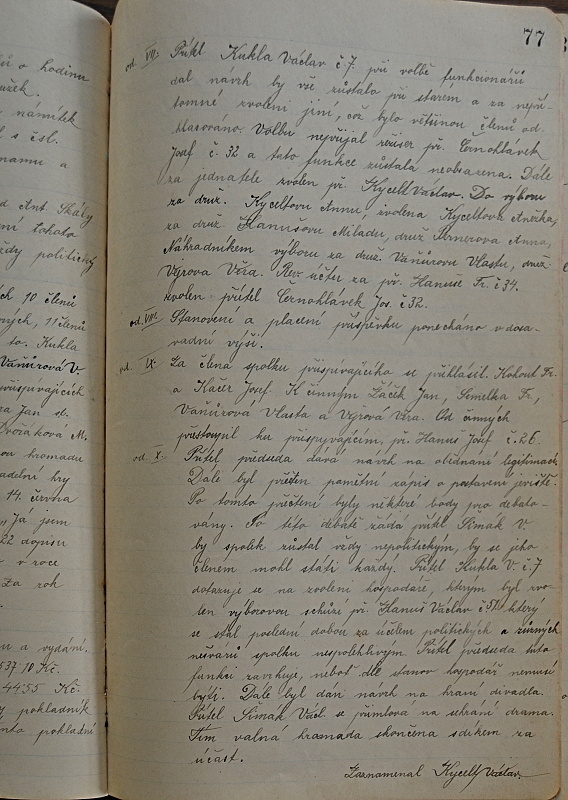 ů o hodinu
užek.
námitek
l s čsl.
namu a
d Ant. Skály
ní tohoto
ždy politický
ch 10 členů
ných, 11 členů
to. Kukla
Vaňůrová V.
přispívajících
za Jan st.
Dvořáková M.
ou hromadu
adelní hry
14. června
„Já jsem
22 dopisu
v roce
Za rok
u a vydání.
537.10 Kč.
4455 Kč.
y pokladník
nto pokladní
77
od. VII. Přítel Kukla Václav č 7. při volbě funkcionářů
dal navrh by vše zůstalo při starém a za nepří-
tomné zvoleni jiní, což bylo většinou členů od-
hlasováno. Volbu nepřijal režiser př. Černohlávek
Josef č. 32 a tato funkce zůstala neobsazena. Dále
za jednatele zvolen př. Kycelt Václav. Do výboru
za druž. Kyceltovu Annu, zvolena Kyceltova Anežka,
za druž. Hanušovu Miladu, druž. Arnerova Anna,
Náhradníkem výboru za druž. Vaňůrovu Vlastu, druž.
Vgrova Věra. Rev. účtu za př. Hanuše Fr. č 34.
zvolen přítel Černohlavek Jos. č 32.
od. VIII. Stanovení a placení příspěvku ponecháno v dosa-
vadní výši.
od. IX. Za člena spolku přispívajícího se přihlásil. Kohout Fr.
a Kačer Josef. K činným Žáček Jan, Semelka Fr.,
Vaňůrova Vlasta a Vgrová Věra. Od činných
přestoupil ku přispyvajícím, př. Hanuš Josef č. 26.
od X. Přítel předseda dává navrh na objednaní legitimací.
Dále byl přečten pamětní zapis o postavení jeviště.
Po tomto přečtení byly některé body pro debato-
vány. Po této debatě žádá přítel Šimak V.
by spolek zůstal vždy nepolitickým, by se jeho
členem mohl státi každy. Přítel Kukla V. č. 7
dotazuje se na zvolení hospodáře, kterým byl zvo-
len výborovou schůzí př. Hanuš Václav č 37 který
se stal poslední dobou za účelem politických a různých
nešvarů spolku nespolehlivým. Přítel předseda tuto
funkci zavrhuje, neboť dle stanov hospodář nemusí
býti. Dále byl dán navrh na hraní divadla.
Přítel Šimak Václ. se přimlouvá na sehrání drama.
Tím valná hromada skončena s díkem za
účast.
Zaznamenal Kycelt Václav.